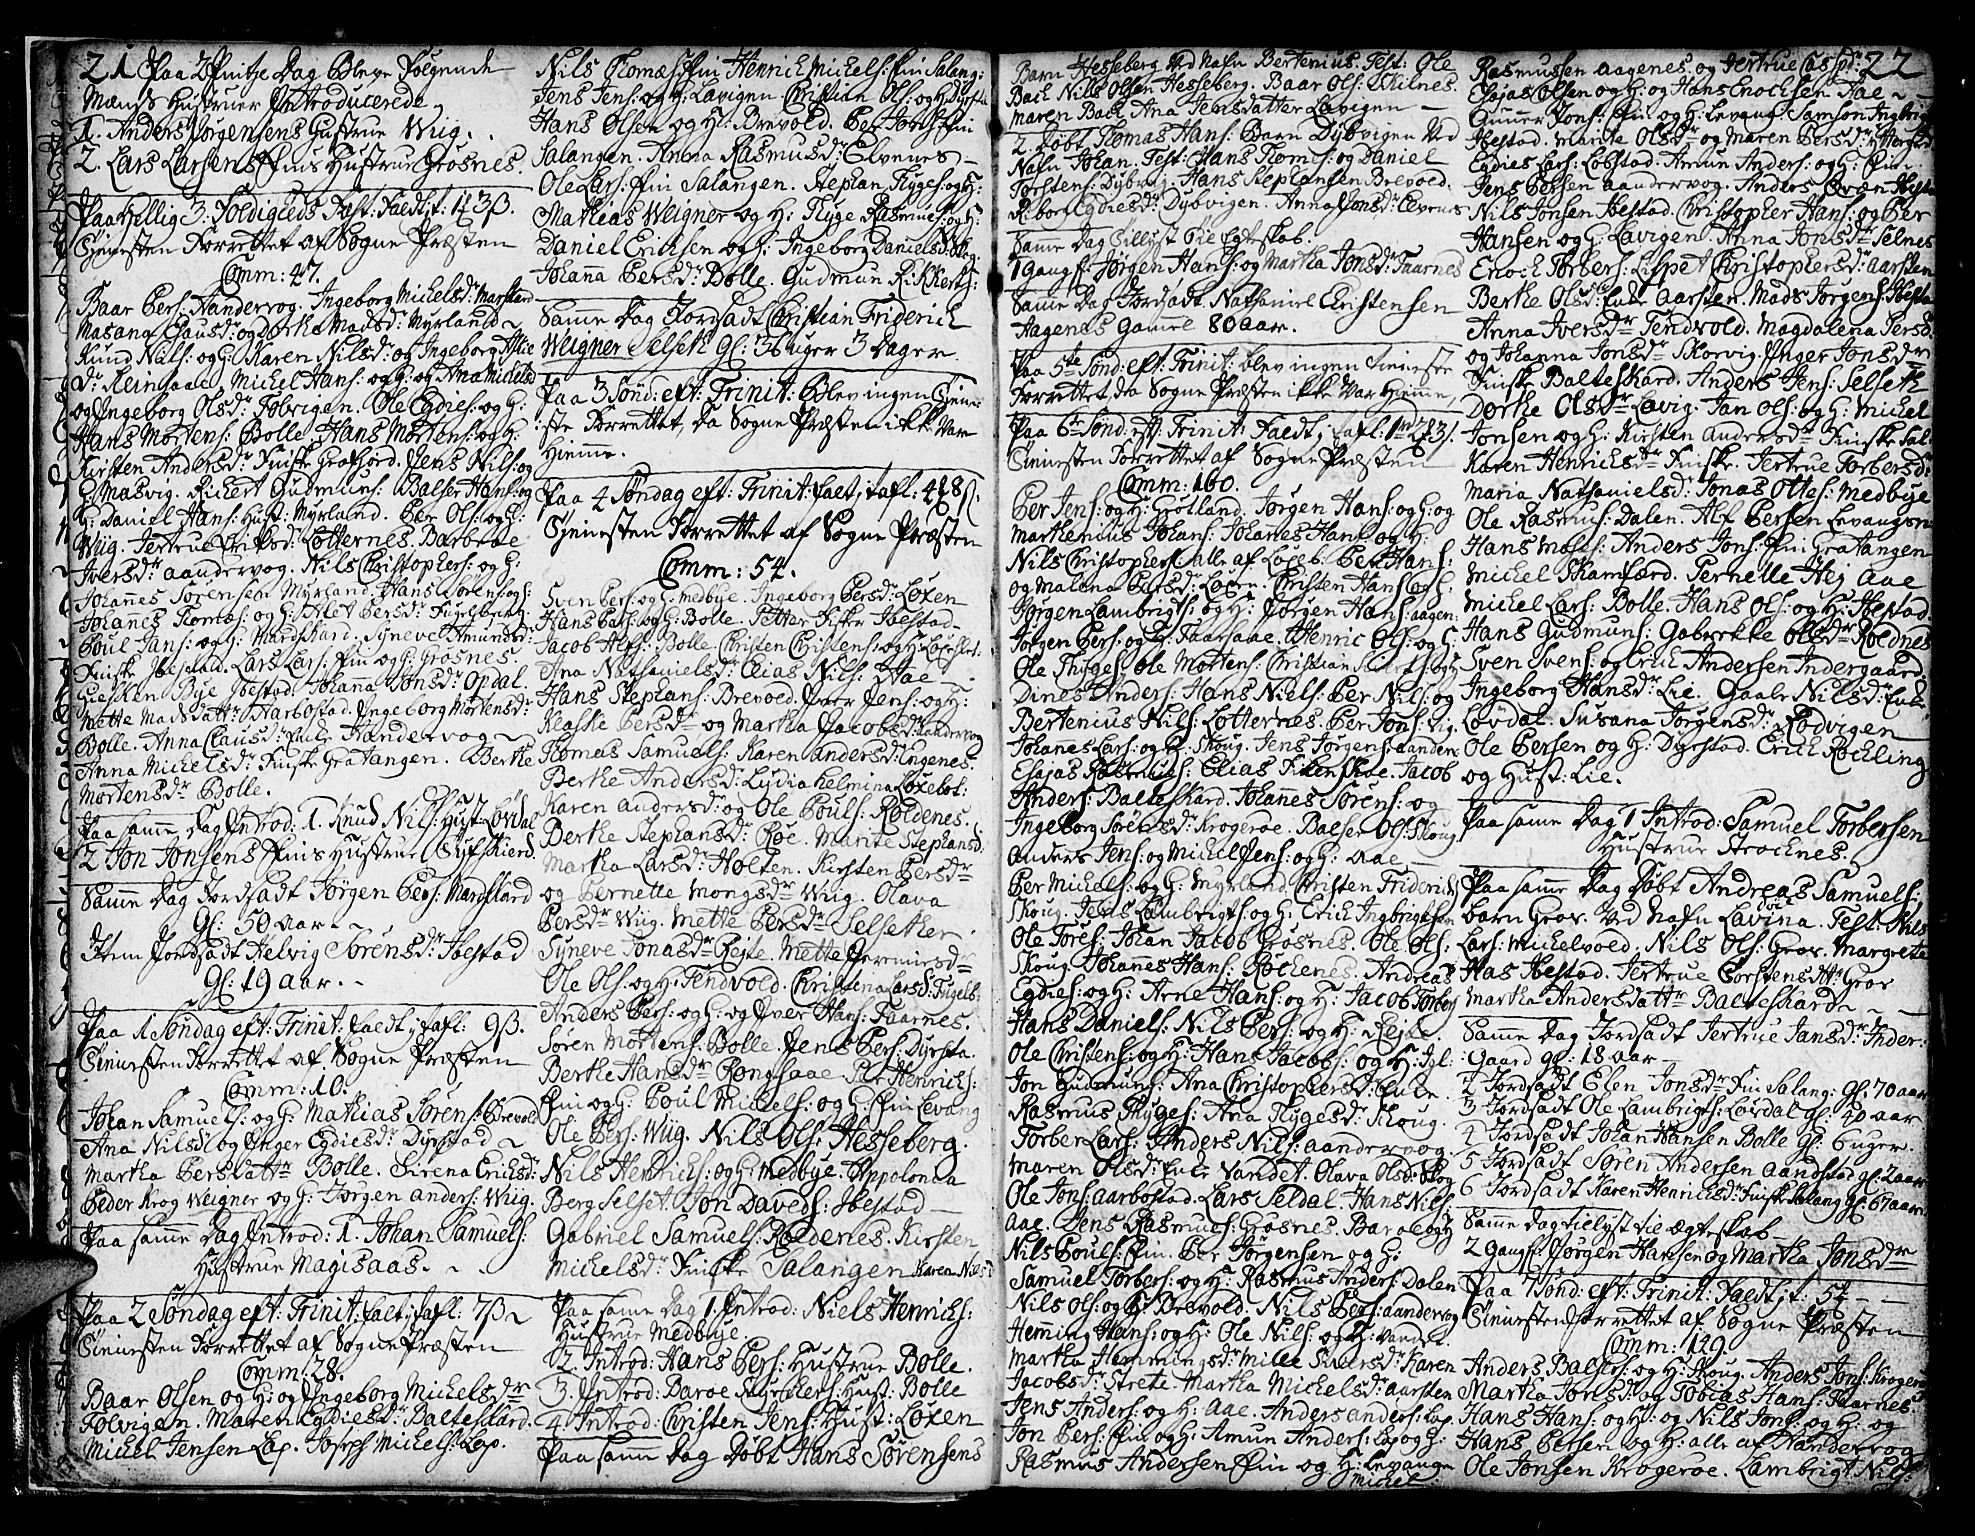 21 Paa 2 Pintze Dag Bleve Følgende
Mænds Hustruer Introducerede
1. Anders Jørgensens Hustrue Wiig.
2. Lars Larsens Fins Hustrue Grosnes.
Paa Hellig 3: Foldigheds Fæst: Faedt: t:
Tienesten Forrettet af Sogne Præsten
Comm: 47.
Baar Pers: Aandervog. Ingeborg Michelsdr:
Masana Clausdr: og Dorthe Madsdr: Myrland
Knud Nils: og H: Karen Nilsdr: og Ingeborg
dr: Reinsaae. Michel Hans: og H: og Ana Michelsd
og Ingeborg Olsdr: Følvigen. Ole Egdies: og H:
Hans Mortens: Bolle. Hans Mortens: og H:
Kirsten Andersdr: Finske Gratfiord. Jens Nils: og
H: Masvig. Rickert Gudmuns: Balser Hans: og
H: Daniel Hans: Hust: Myrland. Per Ols: og H:
Wiig. Jertrue Eriksdr: Lotternes. Barbroe
Iversdr: Aandervog. Nils Christophers: og H:
Johannes Sørensen Myrland. Hans Sørens: og:
Johanes Thomæs: og H: Alet Persdr: Fugelberg.
Poul Jans: og H: Mardskard. Synevet Amunds:
Finske Ibestad. Lars Lars: Fin og H: Grosnes.
Giesken Bye Ibestad. Johanna Jonsdr: Opdal
Mette Madsdattr: Aarbostad. Ingeborg Mortensdr:
Bolle. Anna Clausdr: Enke Aandervog
Anna Michelsdr: Finske Gratangen. Berthe
Mortensdr: Bolle.
Paa samme Dag Introd: 1. Knud Nils: Hust: Løvdal
2 Jon Jonsens Fins Hustrue
Samme Dag Jordsadt Jørgen Pers: Mardskard
Gl: 50 aar
Item Jordsadt Helvig Sørensdr: Ibestad
Gl: 19 aar.
Paa 1. Søndag eft: Trinit: Faedt: i tafl: 9
Tienesten Forrettet af Sogne Præsten
Comm: 10.
Johan Samuels: og H: Mathias Sørens: Brevold
Ana Nilsdr og Inger Egdiesdr: Dyrstad
Martha Persdattr Bolle. Sirena Ericksdr:
Peder Krog Weigner og H: Jørgen Anders: Wiig.
Paa samme Dag Introd: 1. Johan Samuels:
Hustrue Magisaas.
Paa 2 Søndag eft: Trinit: faet: i tafl: 7
Tienesten Forrettet af Sogne Præsten
Comm: 28.
Baar Olsen og H: og Ingeborg Michelsdr
Følvigen. Maren Egdiesdr: Balteskard.
Michel Jensen Lap. Joseph Michels: Lap.
Nils Thomæs: Fin Henrich Michels: Fin Salang:
Jens Jens: og H: Lavigen. Christian Ols: og H: Dyrsta
Hans Olsen og H: Brevold. Per Jons: Fin
Salangen. Anna Rasmusdr: Elvenes
Ole Lars: Fin Salangen. Stephan Flyges: og H:
Mathias Weigner og H: Flyge Rasmus: og H:
Daniel Ericksen og H: Ingeborg Danielsdr:
Johanna Persdr: Bolle. Gudmun Rickerts:
Samme Dag Jordsadt Christian Friderich
Weigner Selseth Gl: 36 uger 3 Dager.
Paa 3 Sönd: eft: Trinit: Blev ingen Tiene
ste Forrettet, da Sogne Præsten ikke Var
Hiemme.
Paa 4 Søndag eft: Trinit: faet: i tafl:
Tienesten Forrettet af Sogne Præsten
Comm: 54.
Sven Pers: og H: Medbye. Ingeborg Persdr: Løxen
Hans Pers: og H: Bolle. Petter Fisker Ibestad
Jacob Alfs: Bolle. Christen Christens: og H:
Ana Nathanielsdr: Elias Nils: Aae
Hans Stephans: Brevold. Iver Jens: og H:
Persdr og Martha Jacobsdr: Aandervog
Thomas Samuels: Karen Andersdr: Engenes.
Berthe Andersdr: Lydia Helmina Løxebot:
Karen Andersdr: og Ole Pouls: Roldenes.
Berthe Stephansdr: Røe. Marite Stephansd:
Martha Larsdr: Holten. Kirsten Persdr
og Pernette Mongsdr Wiig. Olava
Persdr Wiig. Mette Persdr Selsether
Syneve Jonasdr Rejte. Mette Jeremiæsdr
Ole Ols: og H: Tendvold. Christina Larsd: Fugels:
Anders Pers: og H: og Iver Hans: Faarnes.
Søren Mortens: Bolle. Jens Pers: Dyrsta.
Berthe Hansdr Rongsaae Per Henrichs:
Fin og H: Poul Michels: og H: Fin Levang
Ole Pers: Wiig. Nils Ols: Hesseberg.
Nils Henrichs: og H: Medbye. Appolonia
Berg Selset. Jon Davids: Ibestad
Gabriel Samuels: Roldenes. Kirsten
Michelsdr: Finske Salangen Karen Nilsd
Paa same Dag 1. Introd: Niels Henrichs:
Hustrue Medbye.
2. Introd: Hans Pers: Hustrue Bolle.
3. Introd: Baroe Hust: Bolle
4. Introd: Christen Jens: Hust: Løxen
Paa samme Dag Døbt Hans Sørensens
Barn Hesseberg Ved Nafn Bertenius. Test: Ole
Bach Nils Olsen Hesseberg. Baar Ols: Skilnes.
Maren Bach Ana Jensdatter Lavigen
2. Døbt Thomas Hans: Barn Dybvigen Ved
Nafn Johan. Test: Hans Thomes: og Daniel
Torstens: Dybvig. Hans Stephansen Brevold.
Riborg Egdiesdr: Dybvigen. Anna Jonsdr: Elvenes
Samme Dag Tillyst til Egteskab.
1 Gang: Jørgen Hans: og Martha Jonsdr: Faarnes
Samme Dag Jordsadt Nathaniel Christensen
Hagenes Gamel 80 aar.
Paa 5te Sønd: eft: Trinit: blev ingen tieneste
Forrettet, da Sogne Præsten ikke Var Hiemme,
Paa 6te Sønd: eft: Trinit: Faedt: i tafl:
Tienesten Forrettet af Sogne Præsten
Comm: 160.
Per Jens: og H: Grotland. Jørgen Hans: og H: og
Marthenius Johans: Johanes Hans: og H:
Nils Christophers: alle af Per Hans:
og Malena Persdr: Løxen. Christen Hans: og H.
Jørgen Lambrigts: og H: Jørgen Hans: aagen:
Jørgen Pers: og H: Faarsaae. Henric Ols: og H.
Ole Thyges: Ole Mortens: Christian
Dines Anders: Hans Niels: Per Nils: og
Bertenius Nils: Lotternes. Per Jons: Vig.
Johanes Lars: og H: Skoug. Jens Jørgens: aanden:
Esajas Rasmus: Elias Jacob
Anders: Balteskard. Johannes Sørens: og
Ingeborg Sørensdr: Krogeroe. Balser Ols: Skoug
Anders Jens: og Michel Jens: og H: Aae
Per Michels: og H: Myrland. Christen Friderichs
Skoug. Jens Lambrigts: og H: Erich Ingbrigtsen
Ole Tores: Johan Jacob Grosnes. Ole Ols:
Skoug. Johannes Hans: Rochenes. Andreas
Egdies: og H: Arne Hans: og H: Jacob Torbers
Hans Daniels: Nils Pers: og H: Rejte.
Ole Christens: og H: Hans Jacobs: og H: Igl:
Jon Gudmuns: Ana Christophersdr: Enke.
Rasmus Thyges: Ana Flygesdr: Skoug.
Torber Lars: Anders Nils: aandervog.
Maren Olsdr: Enke Vandet. Olava Olsdr: Skog
Ole Jons: aarbostad. Lars Seldal. Hans Nils:
Aae. Jens Rasmus: Grosnes. Baroe og H
Nils Pouls: Fin. Per Jørgensen og H:
Samuel Torbers: og H: Rasmus Anders: Dalen
Nils Ols: og H: Brevold. Nils Pers: aandervog
Hemming Hans: og H: Ole Nils: og H: Vandet.
Martha Hemmingsdr: Karen
Jacobsdr: Strete. Martha Michelsdr: Aarsten
Jens Anders: og H: Aae. Anders Anders: Lap.
Jon Pers: Fin og H: Amun Anders: Lap og H:
Rasmus Andersen Fin og H: Levange
Michel
Rasmussen Aagenes og Jertrue 22
Esajas Olsen og H: og Hans Enochsen Aae
Gunner Jons: Fin og H: Levang: Samson Ingbrig
Ibestad. Marite Olsdr og Maren Persdr:
Egdies Lars: Løbstad. Amun Anders: og H: Fin.
Jens Persen Aandervog. Anders Ibesta
Nils Jonsen Ibestad. Christopher Hans: og Per
Hansen og H: Lavigen. Anna Jonsdr: Selnes
Enoch Torbers: Lispet Christophersdr: Aarsten
Berthe Olsdr: Enke Aarsten. Mads Jørgens: Ibesta
Anna Iversdr Tendvold. Magdalena Persdr
og Johanna Jonsdr Skorvig. Inger Jonsdr
Finske Balteskard. Anders Jens: Selseth
Dorthe Olsdr Lavig. Jan Ols: og H: Michel
Jonsen og H: Kirsten Andersdr Finske Sal:
Karen Henrichsdr Finske. Jertrue Torbersdr:
Maria Nathanielsdr: Jonas Ottes: Medbye
Ole Rasmus: Dalen. Alf Persen Levangsn
Hans Moses: Anders Jons: Fin Gratangen
Michel Skamfærd. Pernelle Hej Aae
Michel Lars: Bolle. Hans Ols: og H: Ibestad.
Hans Gudmuns: Gabrekke Olsdr Roldnes
Sven Svens: og Erich Andersen Indergaard
Ingeborg Hansdr Lie. Gaale Nilsdr: Enke
Løvdal. Susana Jørgensdr: Rodvigen
Ole Persen og H: Dyrstad. Erich Røckling
og Hust: Lie.
Paa samme Dag 1 Introd: Samuel Torbersen
Hustrue Krocknes.
Paa samme Dag Døbt Andreas Samuels:
barn Grov. Ved Nafn Lavina. Test: Nils
Lars: Michelvold. Nils Ols: Grov. Margrete
Has Ibestad. Jertrue Torstensdttr: Grov
Martha Andersdattr Balteskard
Samme Dag Jordsadt Jertrue Jansdr: Inder:
Gaard Gl: 18 aar
2 Jordsadt Elen Jonsdr Fin Salang: Gl: 70 aar
3 Jordsadt Ole Lambrigts: Løvdal Gl: 40 aar
4 Jordsadt Johan Hansen Bolle Gl: 6 uger.
5 Jordsadt Søren Andersen Aandstad Gl: 2 aar
6 Jordsadt Karen Henrichsdr: Finske Salang Gl: 67 aar
Samme Dag tillyst til Ægteskab
2 Gang: Jørgen Hansen og Martha Jonsdr
Paa 7 Sønd: eft: Trinit: Faedt: i t: 54
Tienesten Forrettet af Sogne Præsten
Comm: 149.
Anders Balsers: og H: Skoug. Anders Jons: Krogeroe
Martha Jonsdr og Tobias Hans: Faarnes
Hans Hans: og H: og Nils Jons: og H: og
Hans Persen og H: alle af Aandervog
Ole Jonsen Krogeroe. Lambrigt Nils: